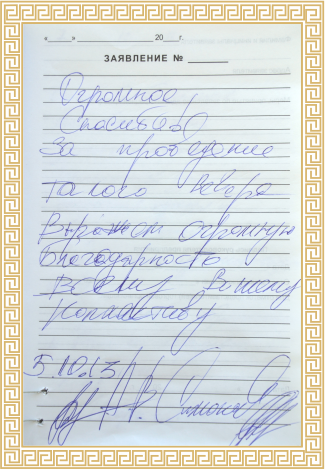 «____» ____________ 20___г.
ЗАЯВЛЕНИЕ № _______
Огромное
Спасибо!
За проведение
такого вечера
Выражаем огромную
благодарность
всему Вашему
коллективу
5.10.13